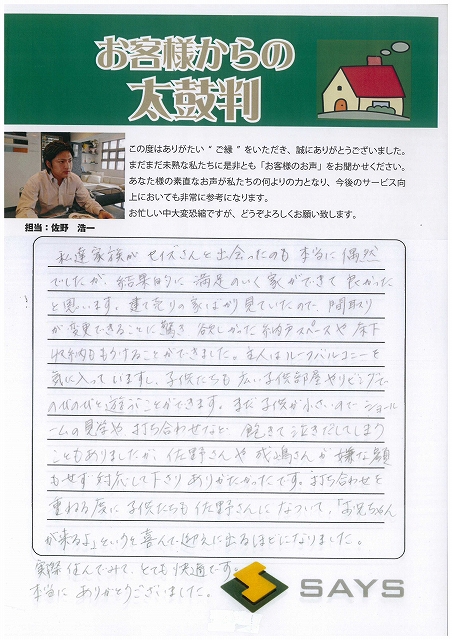 お客様からの
太鼓判
この度はありがたい“ご縁”をいただき、誠にありがとうございました。
まだまだ未熟な私たちに是非とも「お客様のお声」をお聞かせください。
あなた様の素直なお声が私たちの何よりの力となり、今後のサービス向
上においても非常に参考になります。
お忙しい中大変恐縮ですが、どうぞよろしくお願い致します。
担当:佐野 浩一
私達家族が セイズさんと出会ったのも 本当に 偶然
でしたが、結果的に 満足のいく 家ができて 良かった
と思います。建て売りの家ばかり見ていたので、間取り
が変更できることに驚き 欲しかった 納戸スペースや 床下
収納も もうけることができました。主人は ルーフバルコニーを
気に入っていますし、子供たちも 広い子供部屋やリビングで
のびのびと遊ぶことができます。まだ 子供が小さいので ショール
ームの見学や 打ち合わせなど 飽きて泣きだしてしまう
こともありましたが、佐野さんや 成嶋さんが 嫌な顔
もせず 対応して下さり ありがたかったです。打ち合わせを
重ねる度に 子供たちも 佐野さんに なついて、「お兄ちゃん
が来るよ」というと 喜んで 迎えに出るほどになりました。
実際 住んでみて、とても快適です。
本当に ありがとうございました。
SAYS